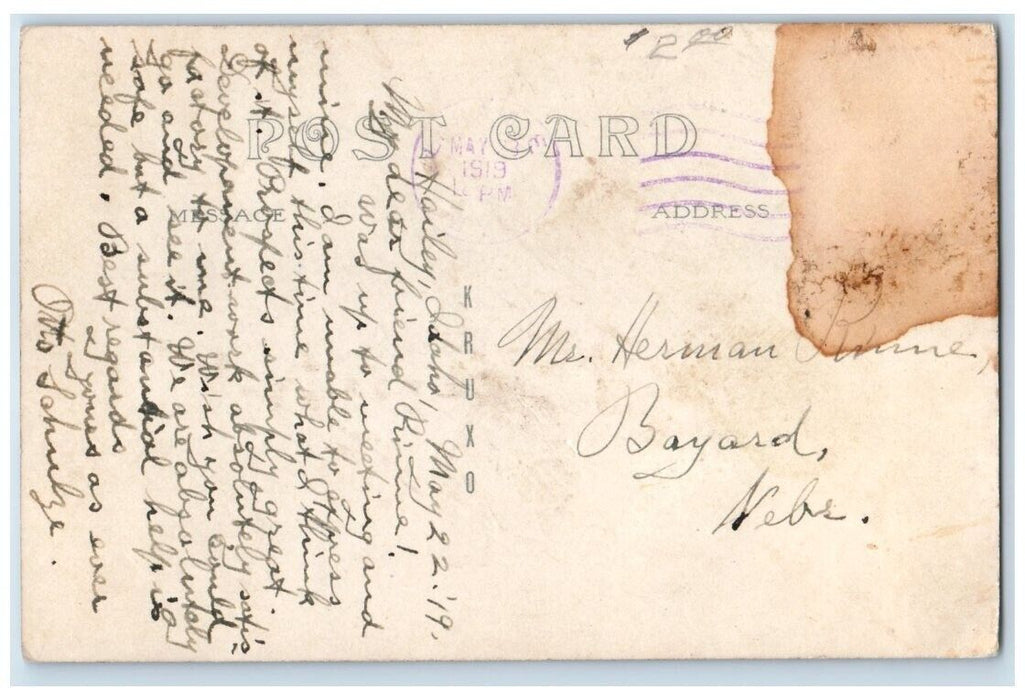 $2.00
POST CARD
MAY
1919
PM
MESSAGE
ADDRESS
KRUXO
Hailey, Idaho, May 22.'19.
My dear friend Rinne!
Was up to meeting and
mine. I am unable to xpress
myself this time what I think
of it. Prospects simply great.
Development work absolutely satis-
factory to me. Wish you could
go and see it. We are absolutely
safe but a substantial help is
needed. Best regards
Yours as ever
Otto Schulze.
Mr. Herman Rinne,
Bayard,
Nebr.